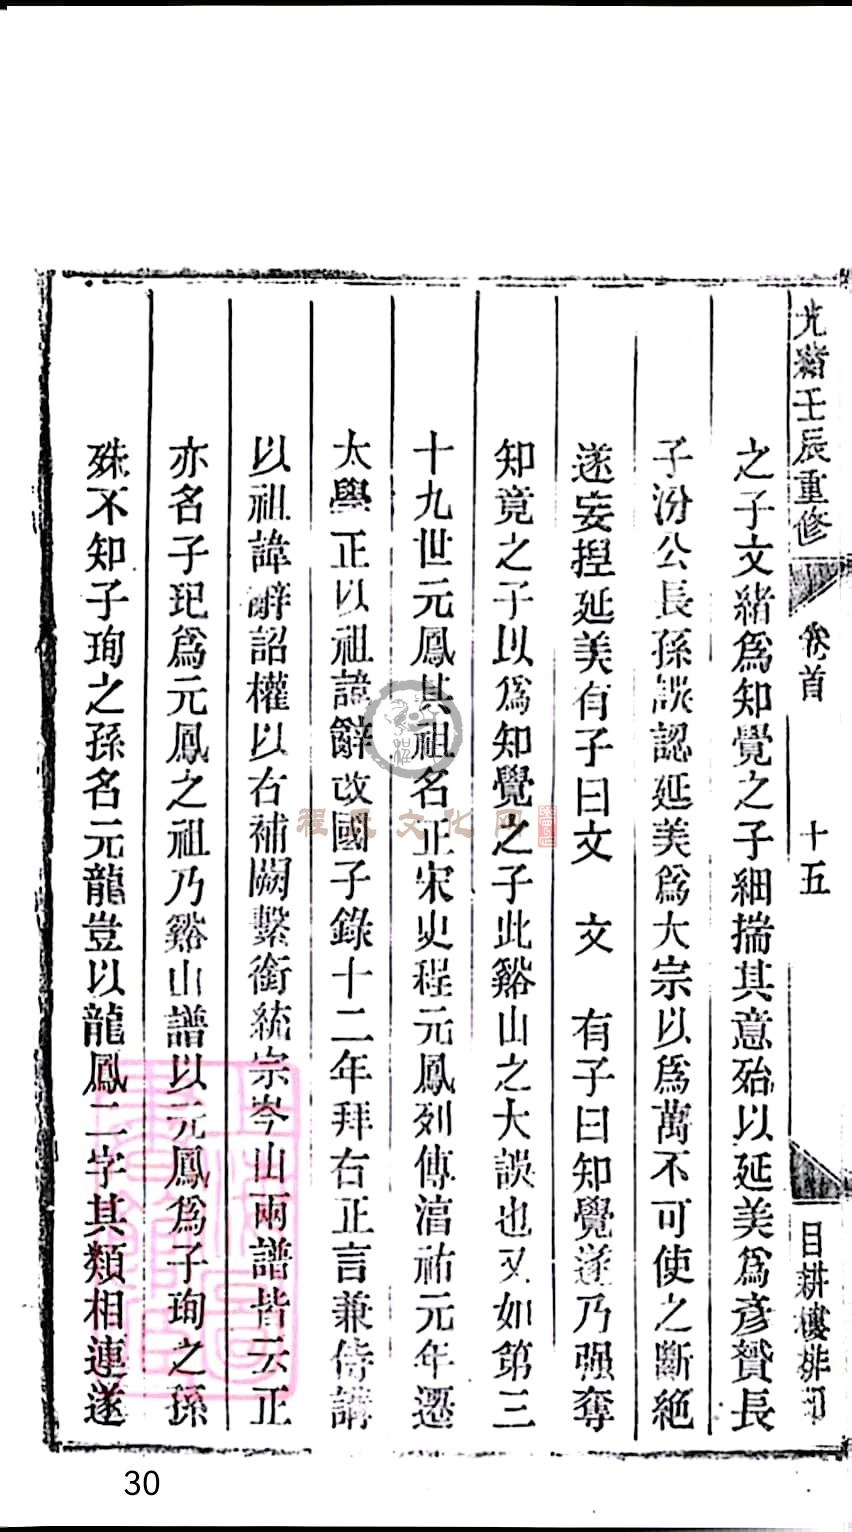 光緒壬辰重修
卷首
十五
目耕樓排印
之子文緒爲知覺之子細揣其意殆以延美爲彥贇長
子汾公長孫誤認延美爲大宗以爲萬不可使之斷絕
遂妄揑延美有子曰文 文 有子曰知覺遂乃强奪
知竟之子以爲知覺之子此谿山之大誤也又如第三
十九世元鳳其祖名正宋史程元鳳列傳湻祐元年遷
太學正以祖諱辭改國子錄十二年拜右正言兼侍講
以祖諱辭詔權以右補闕繫銜統宗岑山兩譜皆云正
亦名子玘爲元鳳之祖乃谿山譜以元鳳爲子珣之孫
殊不知子珣之孫名元龍豈以龍鳳二字其類相連遂
程氏文化网
30